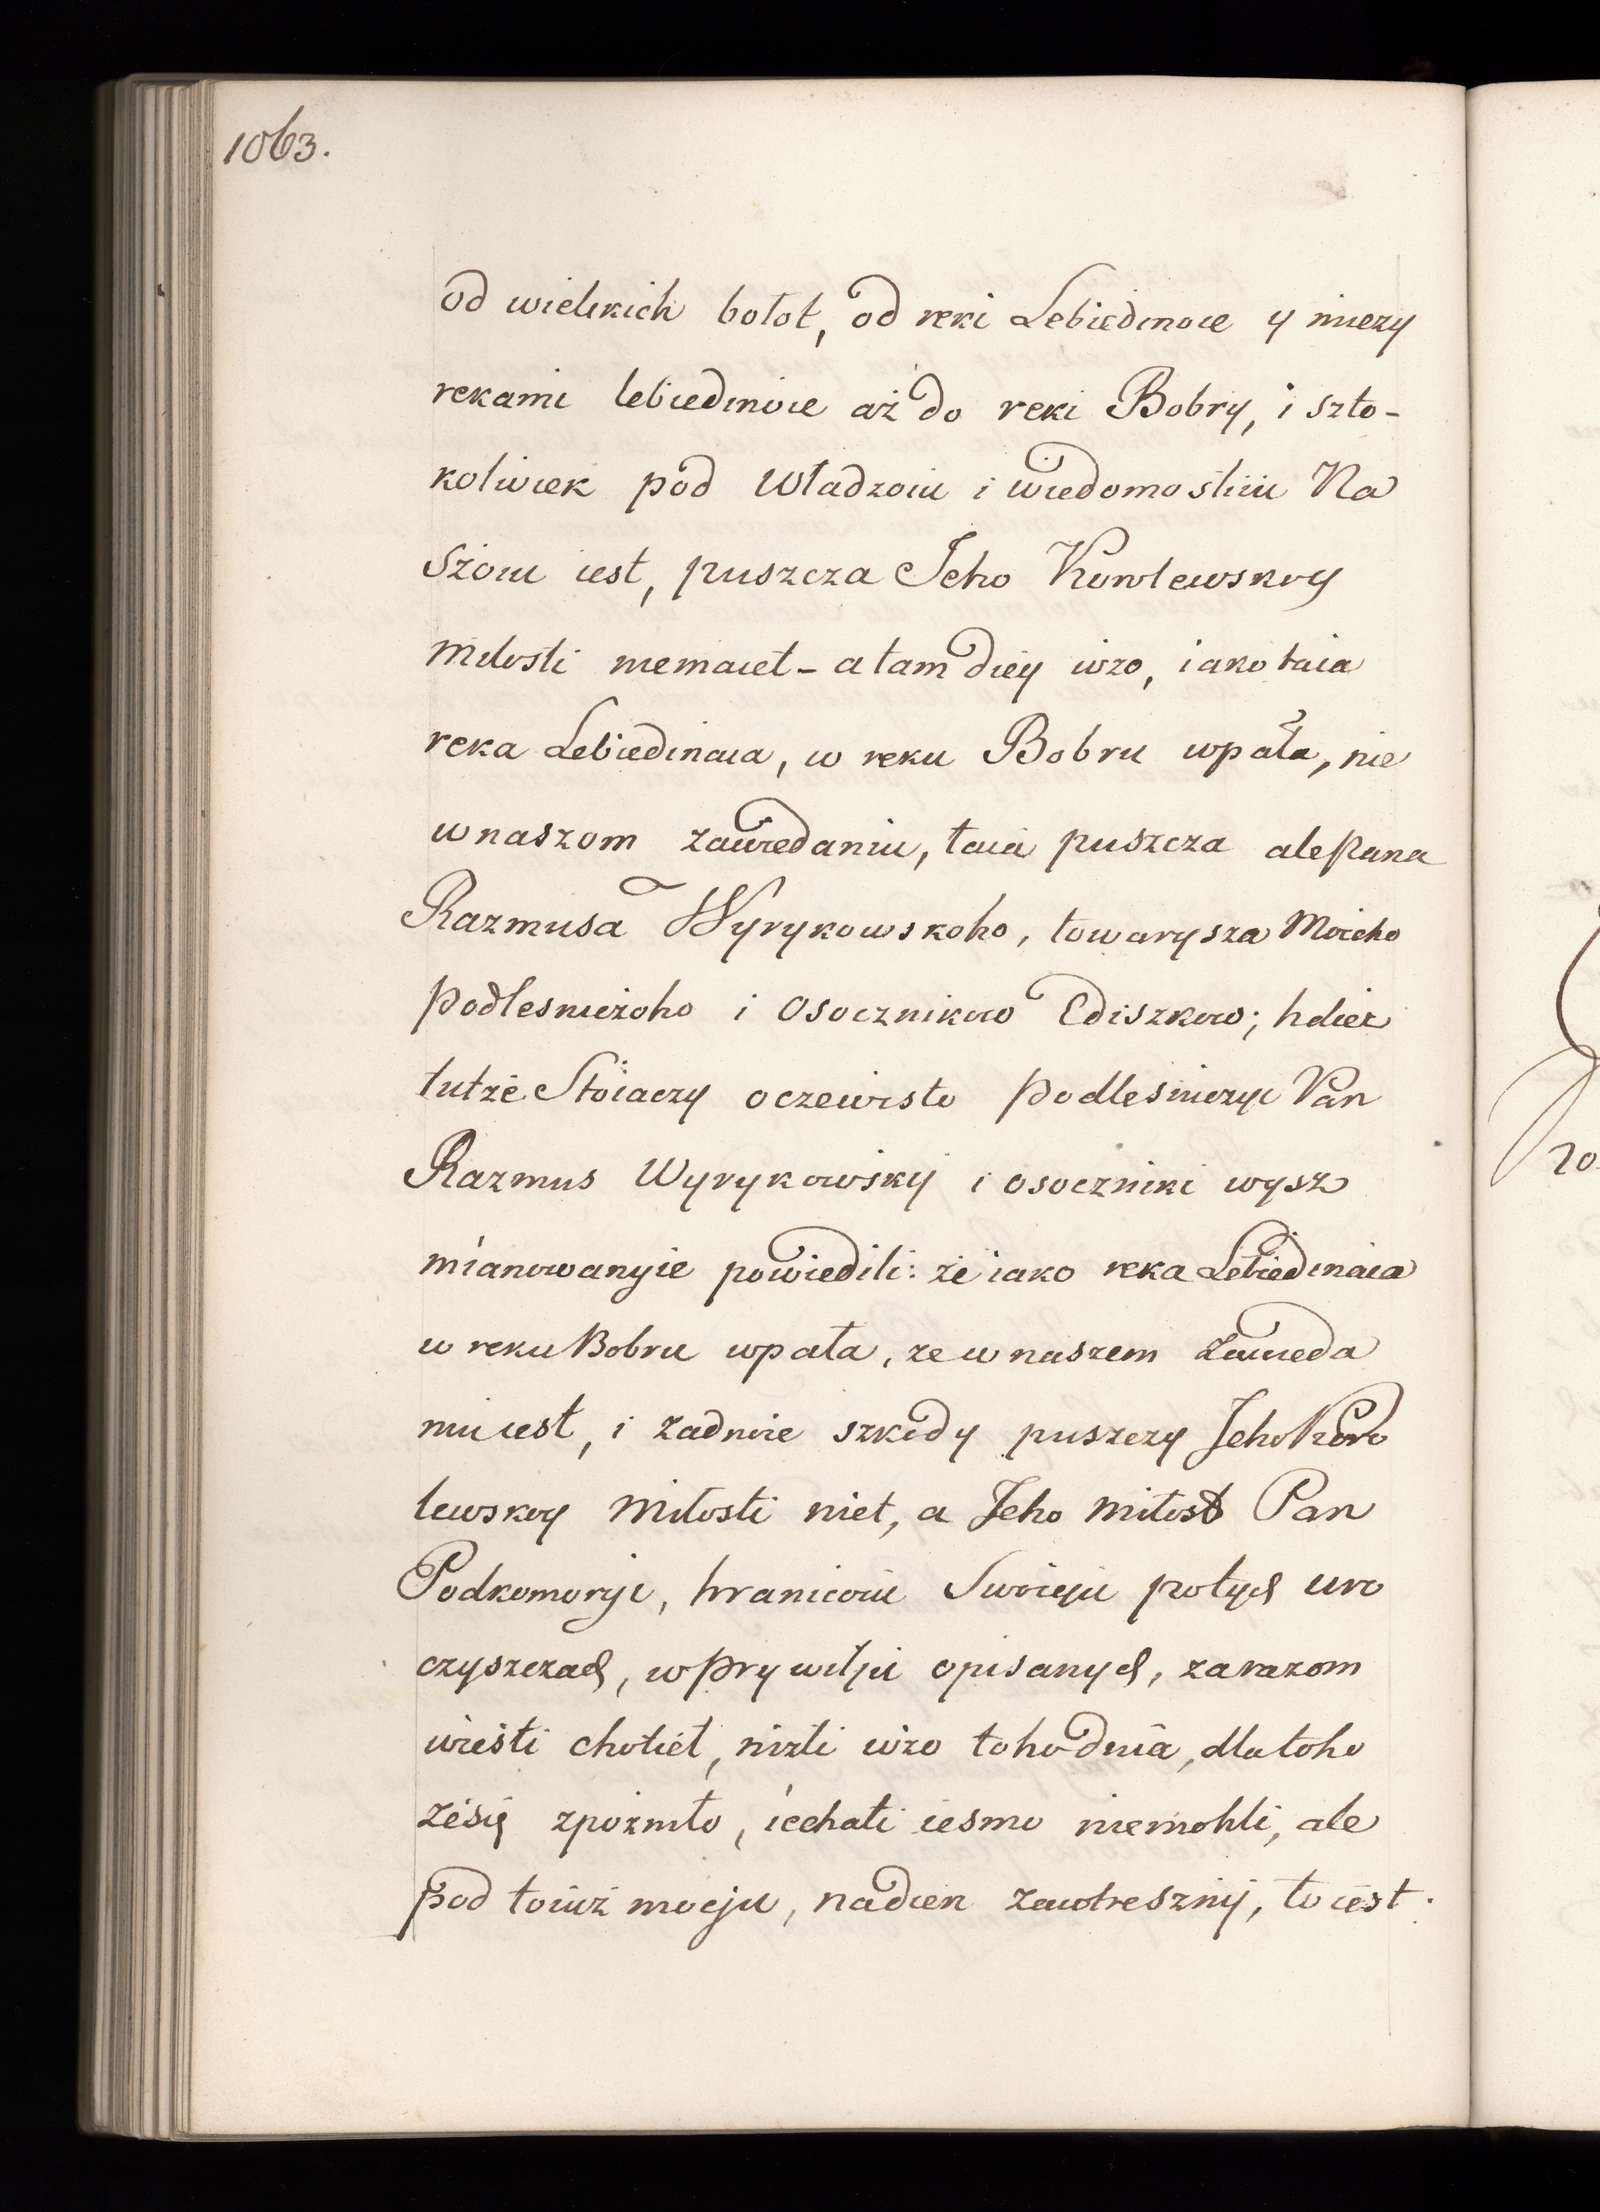 1063.
od wielikich bołot, od reki Lebiedinoie y miezy
rekami lebiedinoie aż do reki Bobry, i szto-
koliwiek pod Władzoiu i wiedomostiiu Na
szoiu iest, puszcza Jeho Korolewskoy
Miłosti niemaiet - a tam diey wżo, iako taia
reka Lebiedinaia, w reku Bobru wpała, nie
w naszom zawiedaniu, taia puszcza ale Pana
Razmusa Wyrykowskoho, towarysza Moieho
Podlesniczoho i Osocznikow Ediszkow; hdież
tutże Stoiaczy oczewisto Podlesniczyi Pan
Razmus Wyrykowskij i osoczniki wysz
mianowanyie powiedili: że iako reka Lebiedinaia
w reku Bobru wpała, że w naszem Zawieda
niu iest, i żadnoie szkody puszczy Jeho Koro
lewskoy Miłosti niet, a Jeho Miłost Pan
Podkomoryi, hranicoiu Swoieju po tych uro
czyszczach, w Prywilju opisanych, zarazom
wiesti chotieł, niżli wżo toho dnia, dla toho
żesię zpoznilo, iechati iesmo niemohli, ale
pod toiuż mocju, na dien zawtresznij, to iest